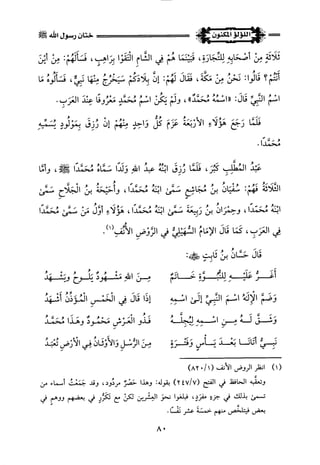 اللؤلؤ المكنون
ختان رسول الله ﷺ
ثَلَاثَةٍ مِنْ أَصْحَابِهِ لِلتِّجَارَةِ، فَبَيْنَمَا هُمْ فِي الشَّامِ الْتَقَوْا بِرَاهِبٍ، فَسَأَلَهُمْ: مِنْ أَيْنَ
أَنْتُمْ؟ قَالُوا: نَحْنُ مِنْ مَكَّةَ، فَقَالَ لَهُمْ: إِنَّ بِلَادَكُمْ سَيَخْرُجُ مِنْهَا نَبِيٌّ، فَسَأَلُوهُ مَا
اسْمُ النَّبِيِّ قَالَ: «اسْمُهُ مُحَمَّدٌ»، ولَمْ يَكُنِ اسْمُ مُحَمَّدٍ مَعْرُوفًا عِنْدَ العَرَبِ.
فَلَمَّا رَجَعَ هَؤُلَاءِ الأَرْبَعَةُ عَزَمَ كُلُّ وَاحِدٍ مِنْهُمْ إِنْ رُزِقَ بِمَوْلُودٍ يُسَمِّيهِ
مُحَمَّدًا.
عَبْدُ المُطَّلِبِ كَبُرَ، فَلَمَّا رُزِقَ ابْنُهُ عبدُ اللهِ وَلَدًا سَمَّاهُ مُحَمَّدًا ﷺ، وأمَّا
الثَّلَاثَةُ فَهُمْ: سُفْيَانُ بنُ مُجَاشِعٍ سَمَّى ابْنَهُ مُحَمَّدًا، وأُحَيْحَةُ بنُ الجُلَاحِ سَمَّى
ابْنَهُ مُحَمَّدًا، وحِمْرَانُ بنُ رَبِيعَةَ سَمَّى ابْنَهُ مُحَمَّدًا، هَؤُلَاءِ أَوَّلُ مَنْ سَمَّى مُحَمَّدًا
فِي العَرَبِ، كَمَا قَالَ الإِمَامُ السُّهَيْلِيُّ فِي الرَّوْضِ الأُنُفِ(١).
قَالَ حَسَّانُ بنُ ثَابِتٍ ﷺ:
أَغَـــرُّ عَلَيْـــهِ لِلنُّبُـــوَّةِ خَـــاتَمٌ مِـنَ اللهِ مَشْـهُودٌ يَلُـوحُ ويَشْـهَدُ
وَضَـمَّ الإِلَهُ اسْـمَ النَّبِيِّ إِلَى اسْـمِهِ إِذَا قَالَ فِي الْخَمْسِ الْمُؤَذِّنُ أَشْهَدُ
وَشَـــقَّ لَـــهُ مِـــنِ اسْـــمِهِ لِيُجِلَّـــهُ فَذُو العَرْشِ مَحْمُودٌ وهَذَا مُحَمَّدُ
نَبِـــيٌّ أَتَانَـــا بَعْـــدَ يَـــأْسٍ وَفَتْـــرَةٍ مِنَ الرُّسْلِ والأَوْثَانُ فِي الأَرْضِ تُعْبَدُ
(١) انظر الروض الأنف (١/ ٨٢٠)
وتعقَّبه الحافظ في الفتح (٧/ ٢٤٧) بقوله: وهذا حَصْرٌ مردُود، وقد جَمَعْتُ أسماء من
تسمى بذلك في جزء مفرَدٍ، فبلغوا نحوَ العِشْرين لكنْ مع تكرُّرٍ في بعضهم ووهمٍ في
بعض فيتلخَّص منهم خمسةَ عشر نفْسًا.
٨٠